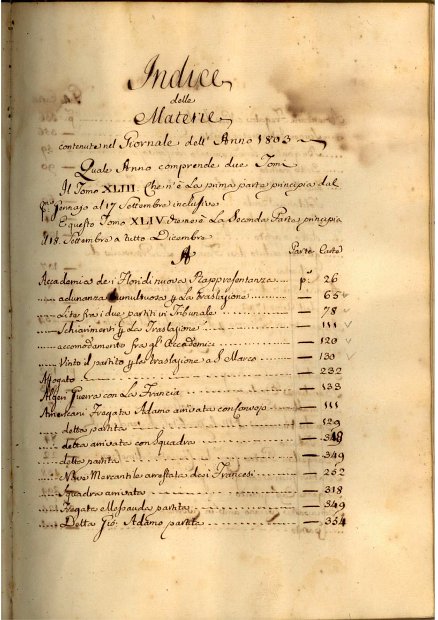 Indice
delle
Materie
contenute nel Giornale dell'Anno 1803
Quale Anno comprende due Tomi
Il Tomo XLIII. Che n'è La prima parte principia dal
Gennajo al 17 Settembre inclusive
E questo Tomo XLIV che n'è La Seconda Parte principia
18. Settembre a tutto Dicembre
A
Parte Carte
Accademia de i Floridi nuova Rappresentanza p.a 26
adunanza tumultuosa La traslazione — 65
Lite fra i due partiti in Tribunale — 78
Schiarimenti La Traslazione — 111
accomodamento fra gl'Accademici — 120
Vinto il partito traslazione a S. Marco — 130
Affogato — 232
Algeri Guerra con La Francia — 133
Americani Fregata Adamo arrivata con Convojo — 111
detta partita — 129
detta arrivata con Squadra — 348
detta partita — 349
Nave Mercantile arrestata dai Francesi — 252
Squadra arrivata — 318
Fregata partita — 349
Detta Gio: Adamo partita — 354